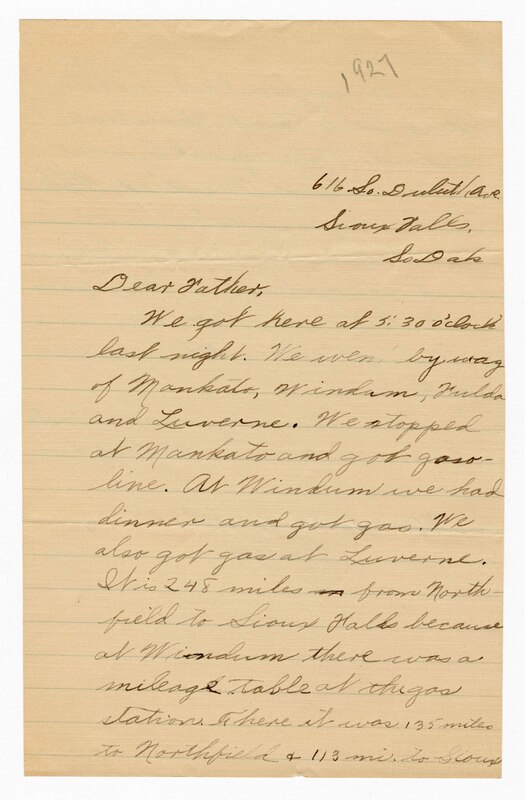 1927
616 So. Duluth Ave
Sioux Falls,
So Dak
Dear Father,
We got here at 5:30 o'clock
last night. We went by way
of Mankato, Windum, Fulda
and Luverne. We stopped
at Mankato and got gaso-
line. At Windum we had
dinner and got gas. We
also got gas at Luverne.
It is 248 miles from North-
field to Sioux Falls because
at Windum there was a
mileage table at the gas
station. There it was 135 miles
to Northfield & 113 mi. to Sioux